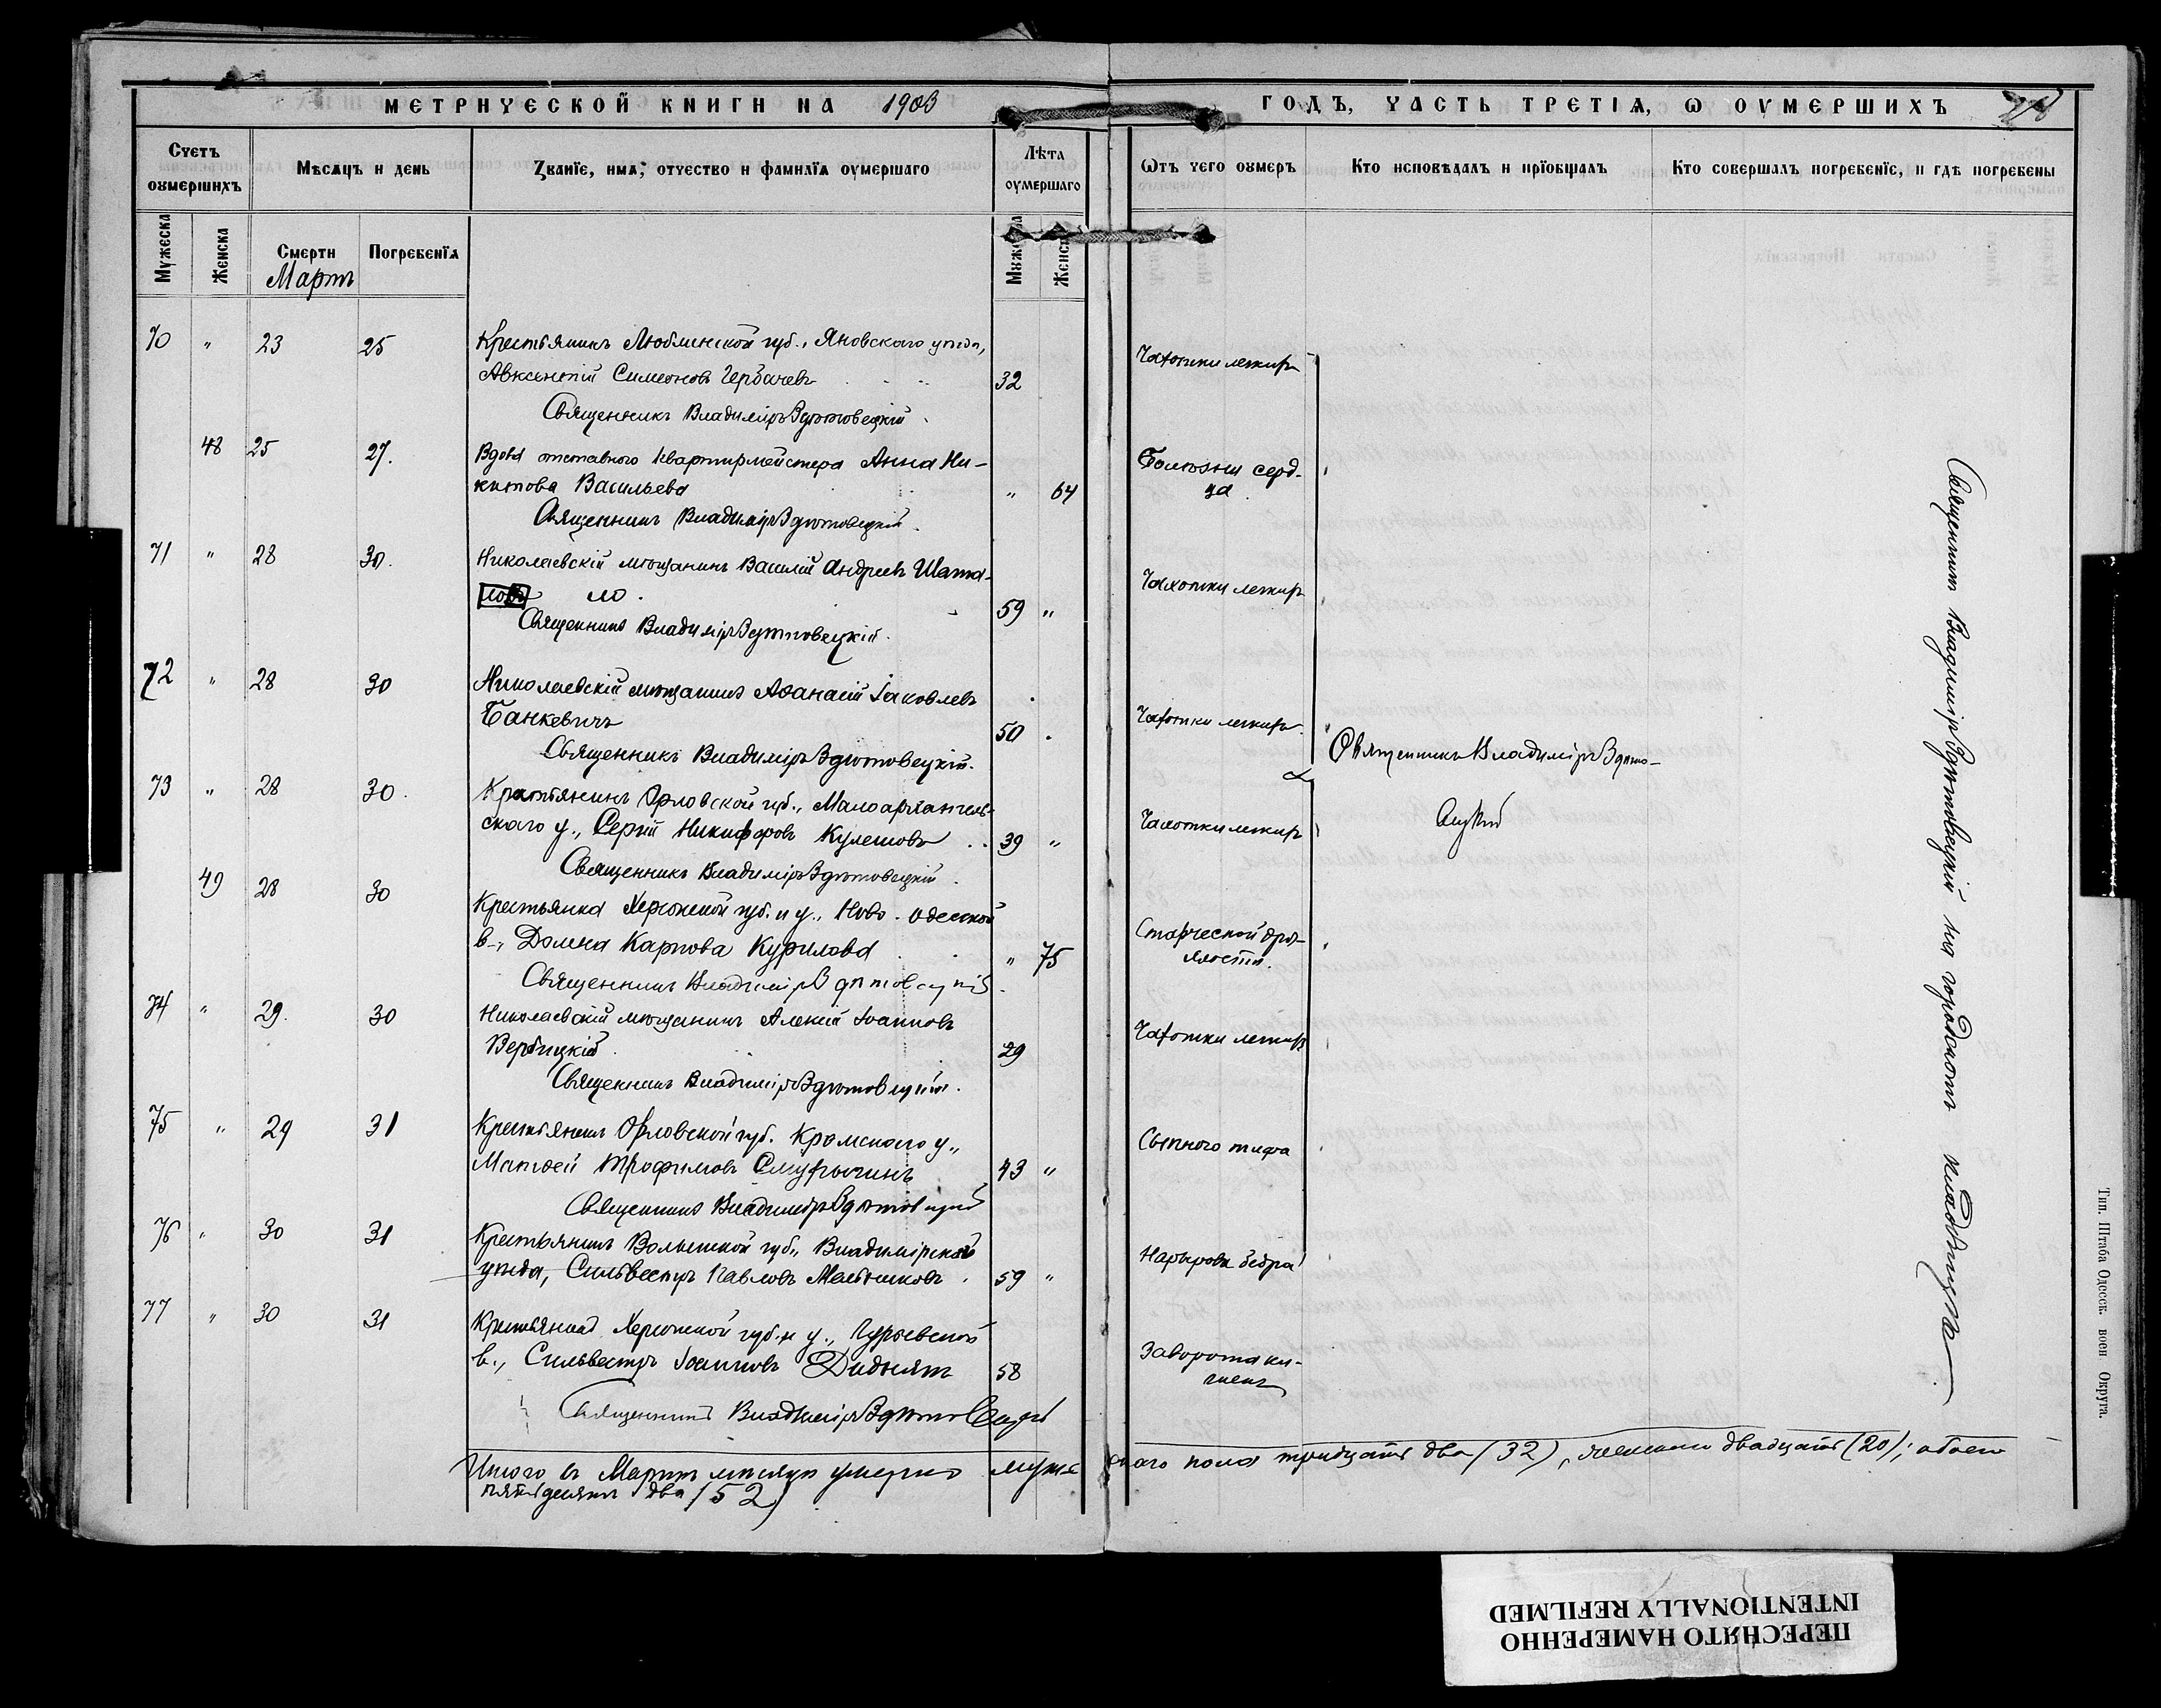 МЕТРИЧЕСКОЙ КНИГИ НА 1903 ГОДЪ, ЧАСТЬ ТРЕТІѦ, Ѡ ОУМЕРШИХЪ
Счетъ оумершихъ
Мѣсѧцъ и день
Званїе, имѧ, отчество и фамилїѧ оумершаго
Лѣта оумершаго
Ѿтъ чего оумеръ
Кто исповѣдалъ и прїобщалъ
Кто совершалъ погребенїе, и гдѣ погребены
Мужеска
Женска
Смерти
Погребенїѧ
Мужеска
Женска
Мартъ
70 " 23 25 Крестьянинъ Люблинской губ., Яновскаго уѣзда,
Авксентій Симеоновъ Гербачевъ 32 Чахотки легкихъ
Священникъ Владиміръ Здѣтовецкій.
48 25 27. Вдова отставного квартирмейстера Анна Ни-
китова Васильева " 64 Болѣзни серд-
ца.
Священникъ Владиміръ Здѣтовецкій.
71 " 28 30. Николаевскій мѣщанинъ Василій Андреевъ Шата-
ло. 59 " Чахотки легкихъ
Священникъ Владиміръ Здѣтовецкій.
72 " 28 30 Николаевскій мѣщанинъ Аѳанасій Іаковлевъ
Банкевичъ 50 Чахотки легкихъ.
Священникъ Владиміръ Здѣтовецкій.
Священникъ Владиміръ Здѣто-
вецкій
73 " 28 30. Крестьянинъ Орловской губ., Малоархангель-
скаго у., Сергій Никифоровъ Кулешовъ 39 " Чахотки легкихъ
Священникъ Владиміръ Здѣтовецкій.
49 28 30 Крестьянка Херсонской губ. и у., Ново-Одесской
в., Домна Карпова Курилова " 75 Старческой дрях-
лости.
Священникъ Владиміръ Здѣтовецкій.
74 " 29. 30 Николаевскій мѣщанинъ Алексій Іоанновъ
Вербицкій. 29 Чахотки легкихъ
Священникъ Владиміръ Здѣтовецкій.
75 " 29 31 Крестьянинъ Орловской губ. Кромскаго у.,
Матѳей Трофимовъ 43 " Сыпного тифа
Священникъ Владиміръ Здѣтовецкій
76 " 30 31 Крестьянинъ Волынской губ., Владимірскаго
уѣзда, Сильвестръ Павловъ Мельниковъ. 59 " Нарывовъ бедра
77 " 30 31 Херсонской губ. и у., Гурьевской
в., Сильвестръ Іоанновъ Дидьлятъ 58 Заворота ки-
шекъ
Священникъ Владиміръ Здѣтовецкій
Священникъ Владиміръ Здѣтовецкій на городскомъ кладбищѣ
Итого въ Мартѣ мѣсяцѣ умерло мужескаго пола тридцать два (32), женскаго двадцать (20); обоего
пятьдесятъ два (52)
Тип. Штаба Одесск. воен Округа.
ПЕРЕСНЯТО НАМЕРЕННО
INTENTIONALLY REFILMED